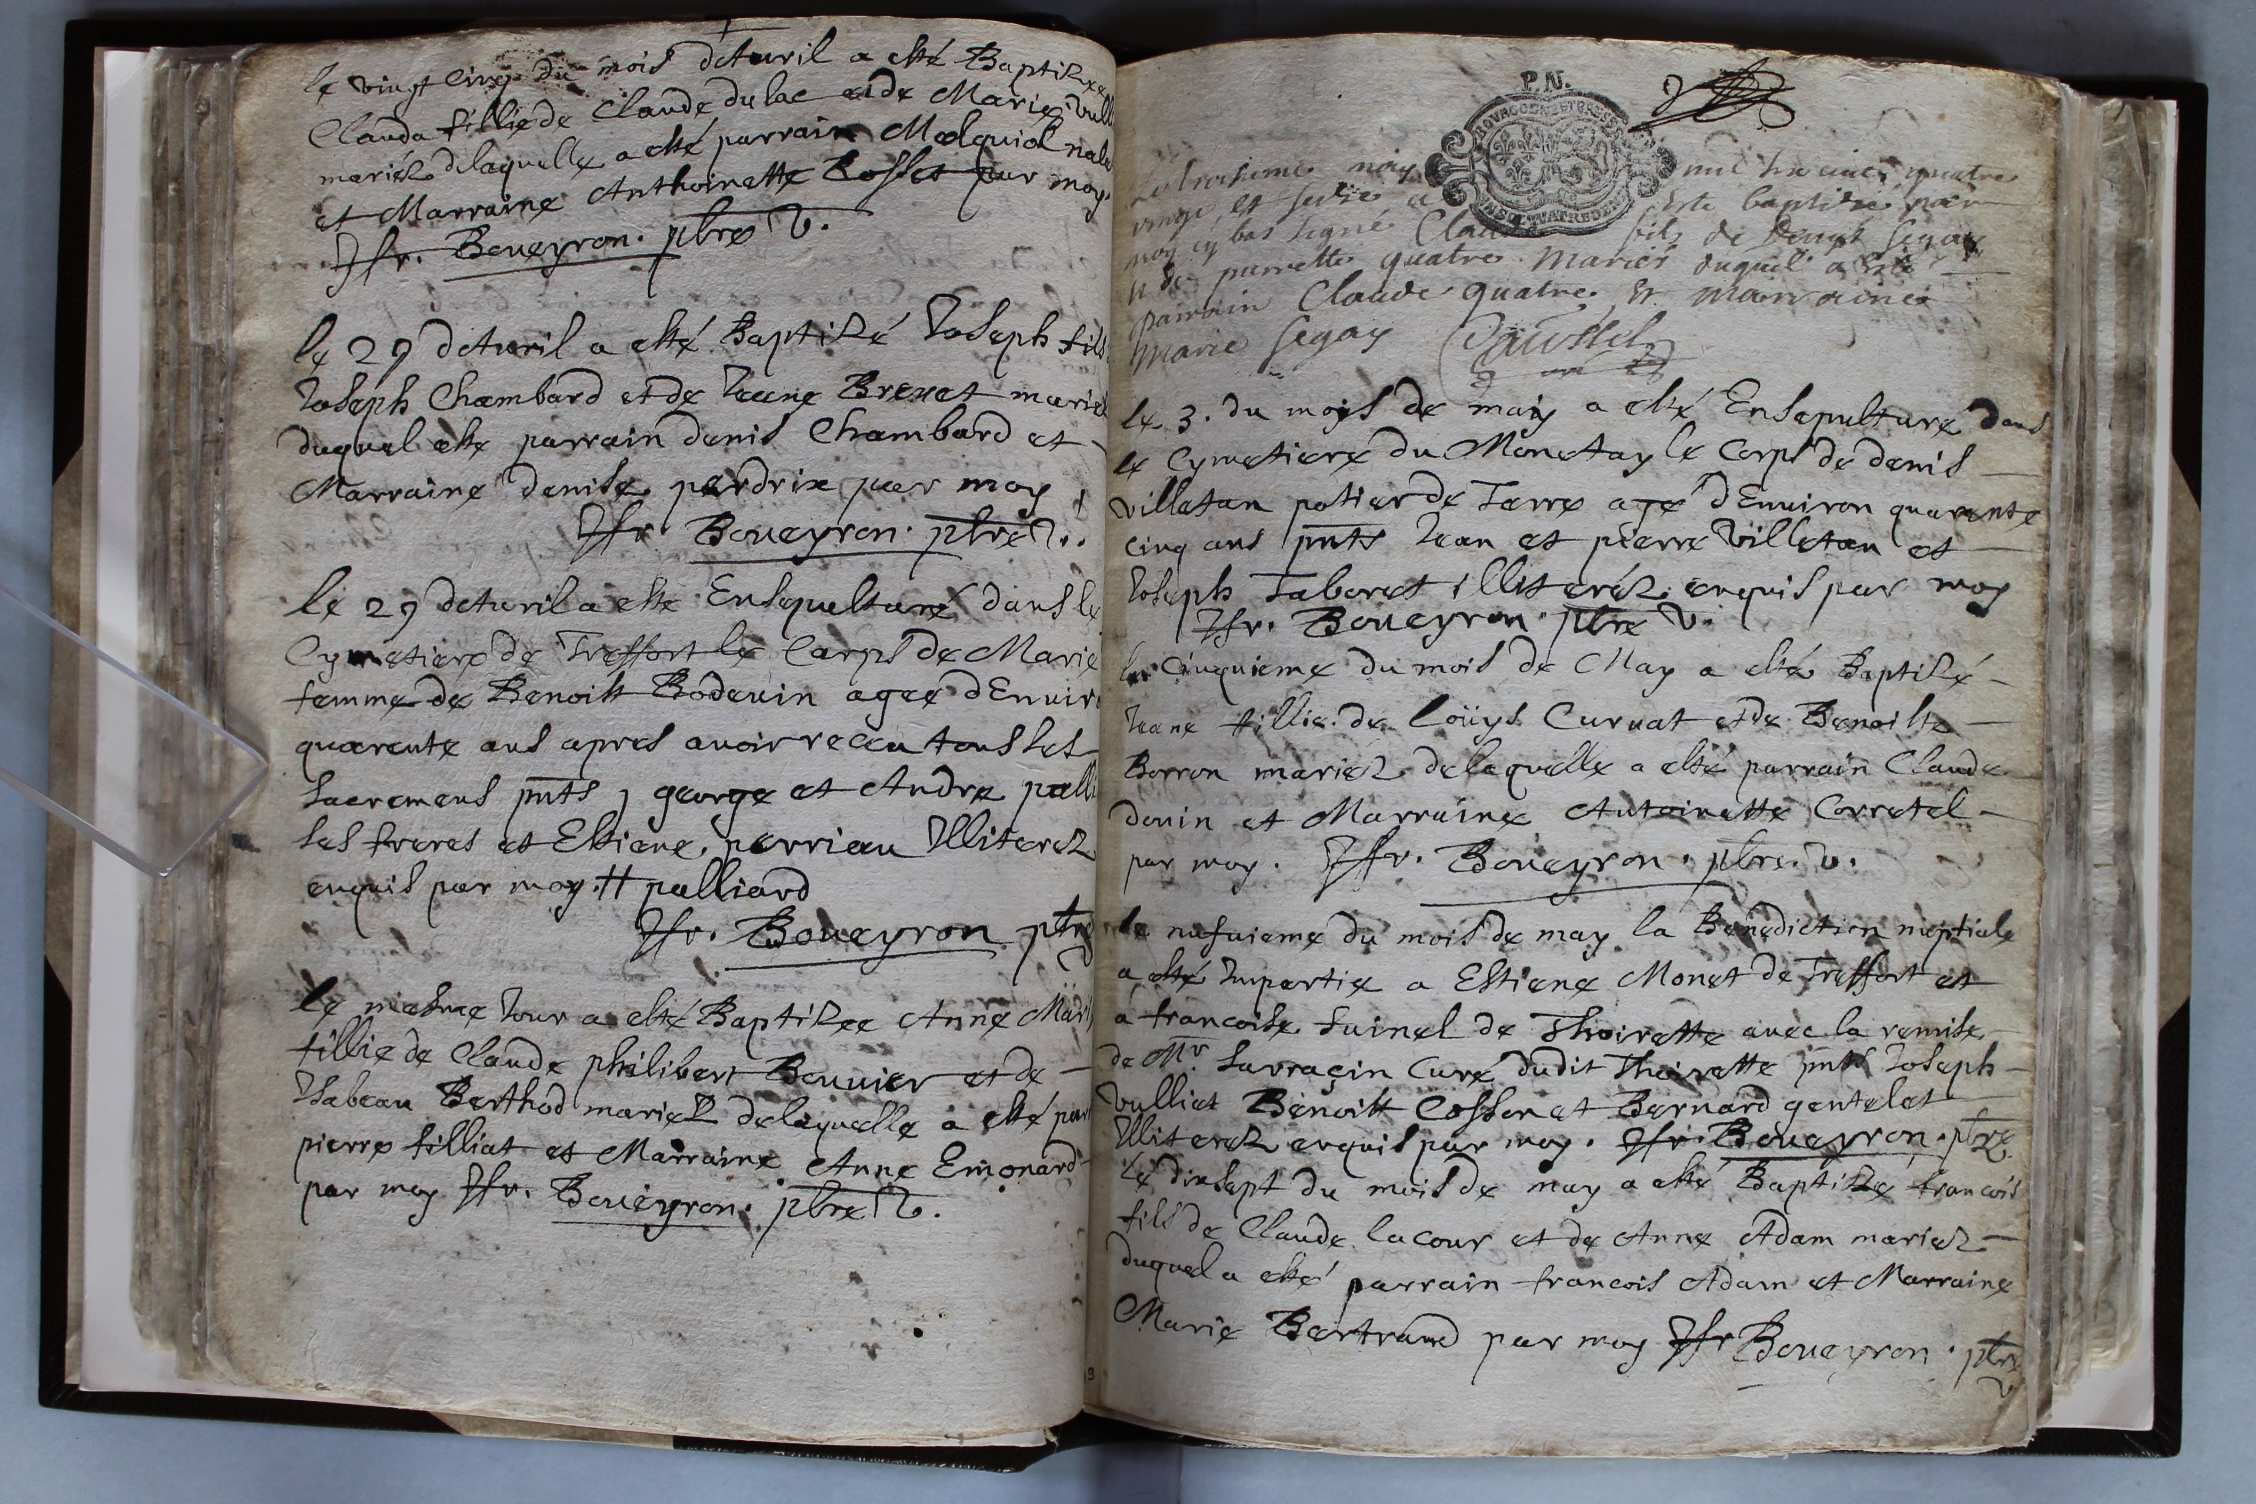 le vingt cinq du mois d'Avril a esté Baptizée
Clauda fillie de Claude du lac et de Marie
mariéz delaquelle a esté parrain
et Marraine Anthoinette Rosset par moy
Boueyron. pbre V.
le 29 d'Avril a esté Baptizé Joseph fils
Joseph Chambard et de Jeane Brevet mariez
duquel este parrain denis Chambard et
Marraine denise perdrix par moy
Boueyron. pbre V.
le 29 d'Avril a este Ensepulturé dans le
Cymetiere de Treffort le Corps de Marie
femme de Benoist Bodevin agée d'Envir
quarente ans apres avoir receu tous les
sacremens pnts george et Andre palli
ses freres et Estiene perriau Illiterez
enquis par moy. # palliard
Boueyron ptre
le mesme Jour a esté Baptizée Anne
fillie de Claude philibert Bouvier et de
Isabeau Berthod mariez delaquelle a esté par
pierre filliat et Marraine Anne Emonard
par moy Boueyron. pbre V.
P. N.
Le troisieme may mil six cent quatre
vingt et seize a este baptizé par
moy cy bas signé Claude fils de Denys Segay
et de parrette quatre mariés duquel a esté
parrain Claude quatre et marraine
Marie Segay
le 3. du moys de may a esté Ensepulturé dans
le Cymetiere du Monetay le Corps de denis
villetan potier de Terre agé d'Environ quarente
cinq ans pnts Jean et pierre Villetan et
Joseph Taboret illiteréz enquis par moy
Boueyron. pbre V.
le Cinquieme du mois de May a esté Baptizé
Jeane fillie de Loüys Curvat et de Benoiste
Borron mariez delaquelle a esté parrain Claude
douin et Marraine Antoinette Corretel
par moy. Boueyron. pbre. V.
le nufuieme du mois de may la Benediction nuptiale
a esté Impartie a Estiene Monet de Treffort et
a francoise suinel de Thoirette avec la remise
de Mr. Sarraçin Curé dudit Thoirette pnts Joseph
Vulliet Benoist Cosson et Bernard gentelet
Illiterez enquis par moy. Boueyron. ptre
le dixsept du mois de may a esté Baptizé francois
fils de Claude lacour et de Anne Adam mariez
duquel a esté parrain francois Adam et Marraine
Marie Bertrand par moy Boueyron. ptre
V